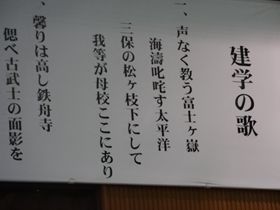 建学の歌
一、声なく教う富士ヶ嶽
海濤叱咤す太平洋
三保の松ヶ枝下にして
我等が母校ここにあり
、馨りは高し鉄舟寺
偲べ古武士の面影を